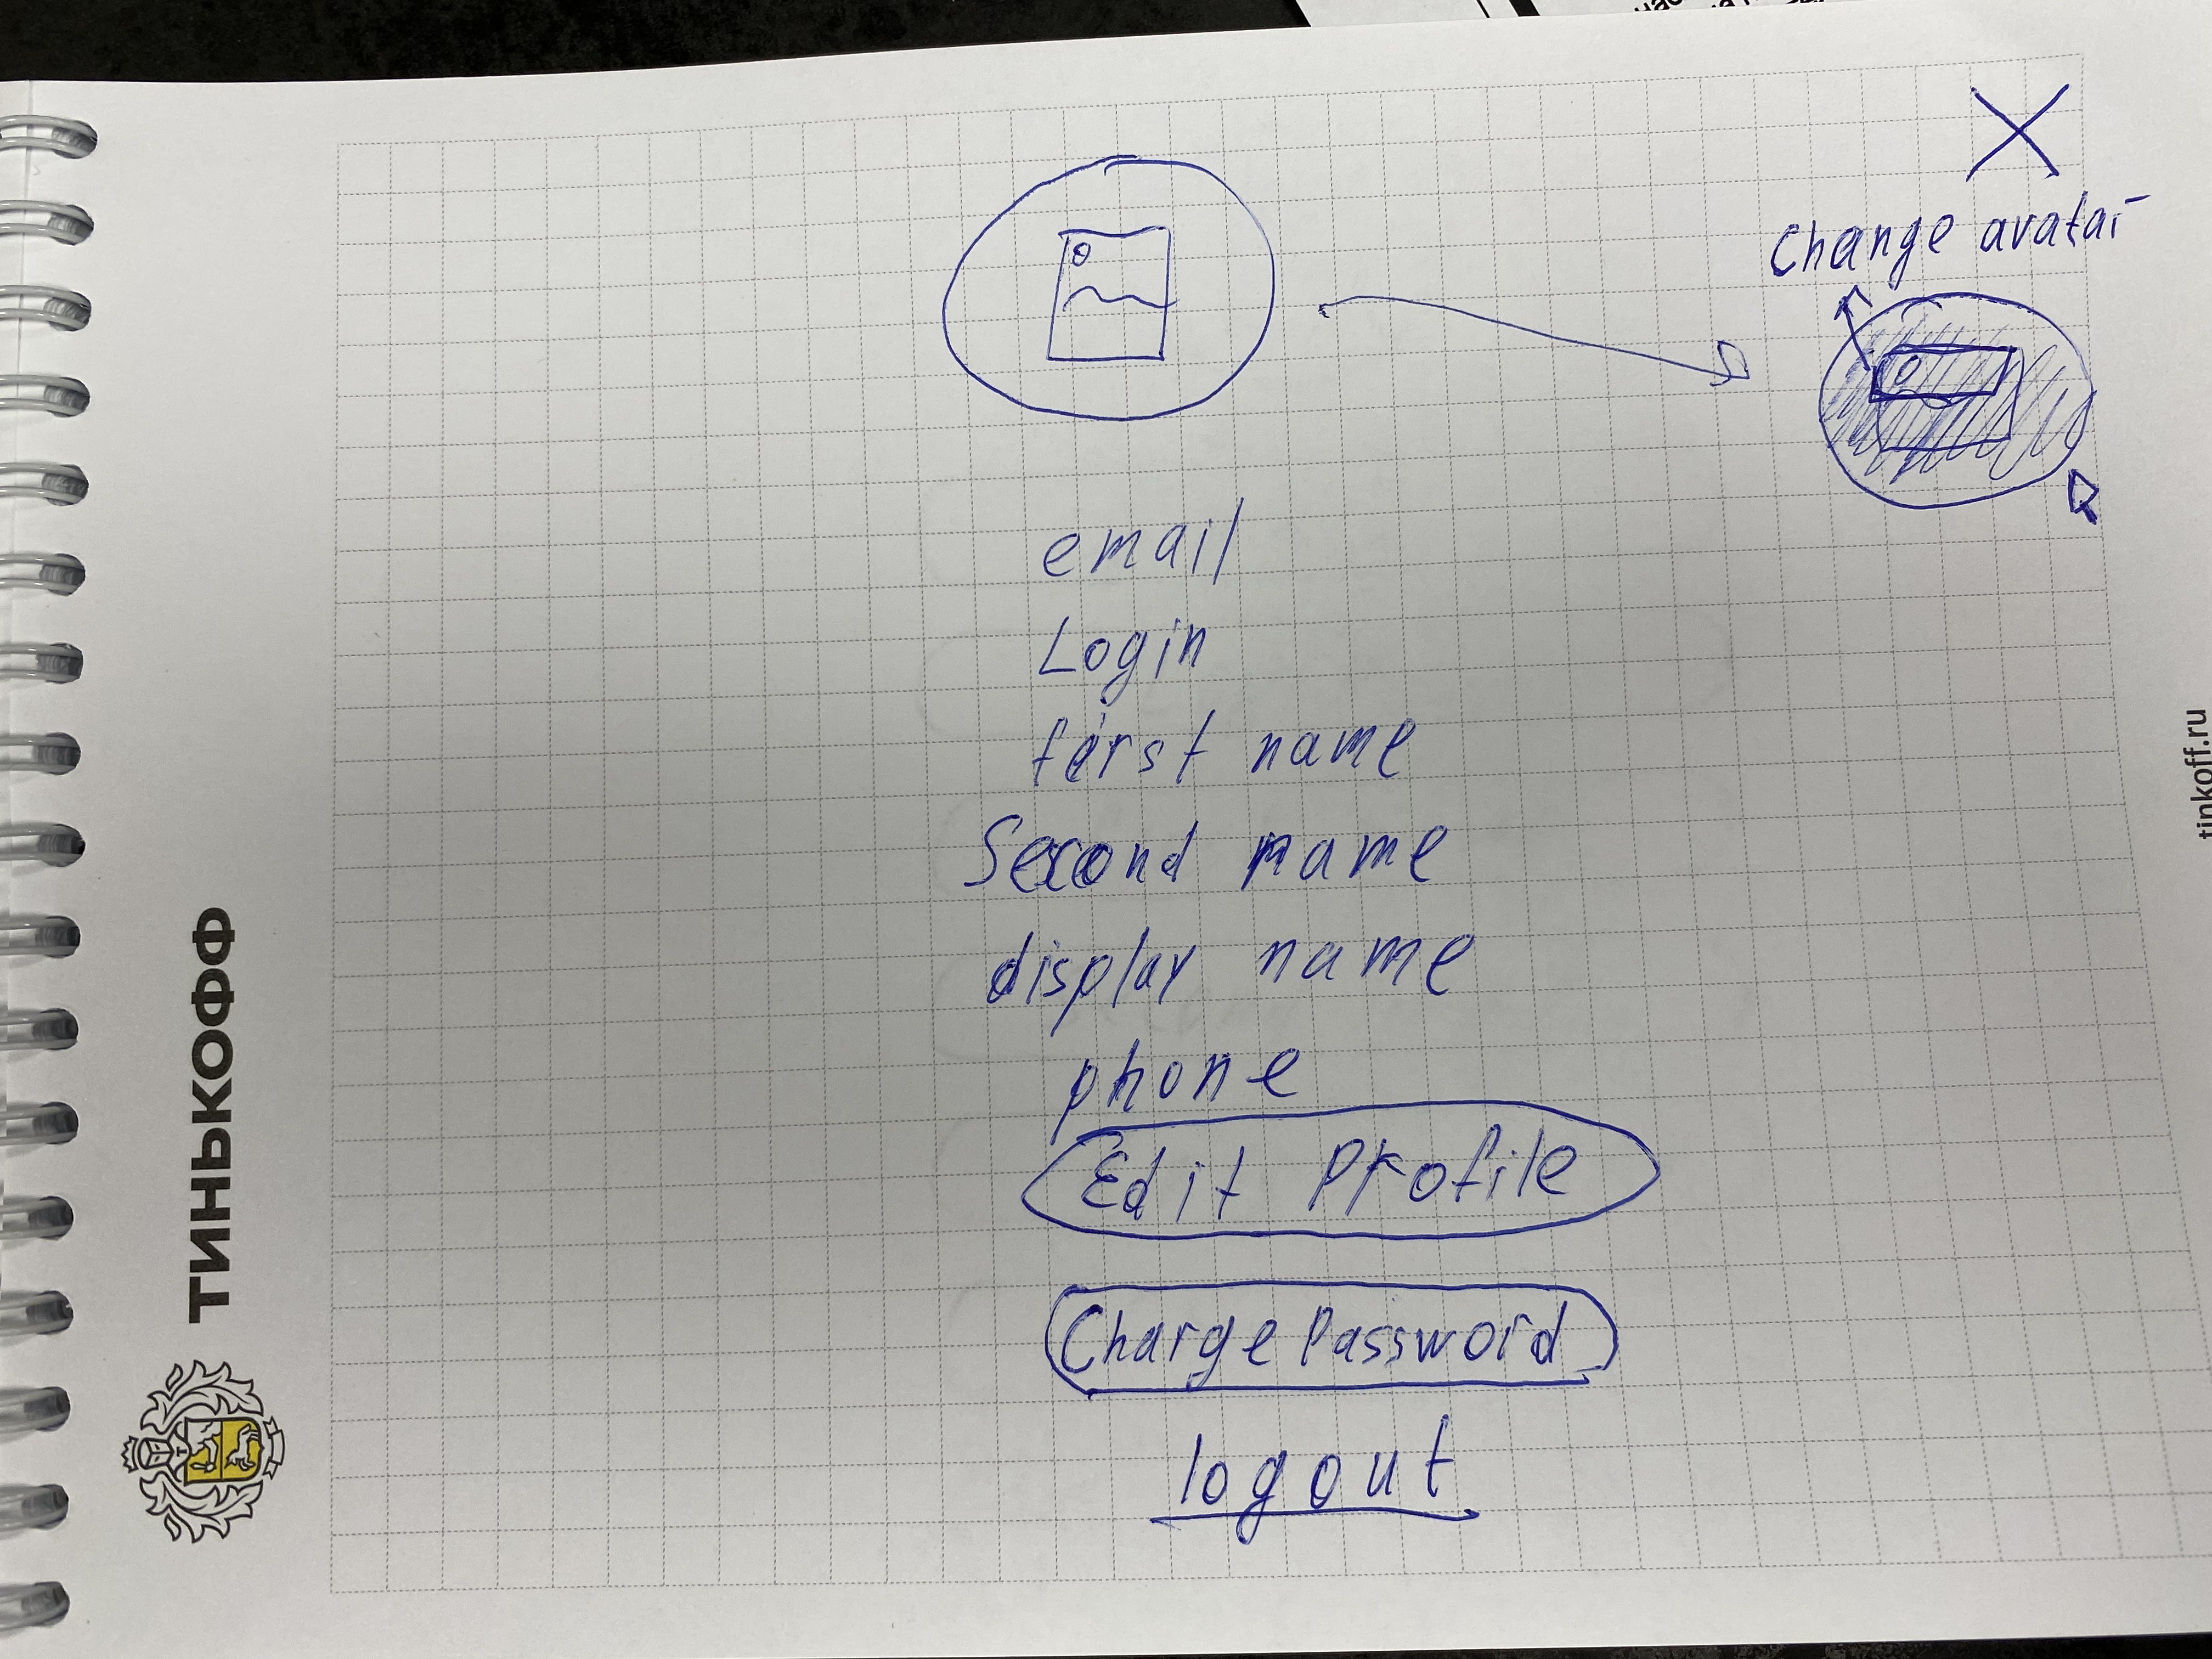 Change avatar
email
Login
first name
Second name
display name
phone
Edit Profile
Change Password
logout
ТИНЬКОФФ
tinkoff.ru